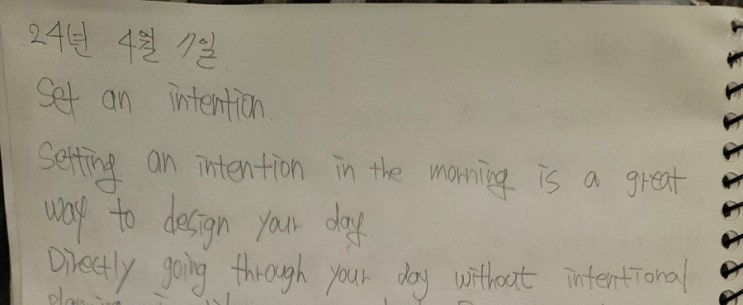 24년 4월 11일
Set an intention.
Setting an intention in the morning is a great
way to design your day.
Directly going through your day without intentional
planning